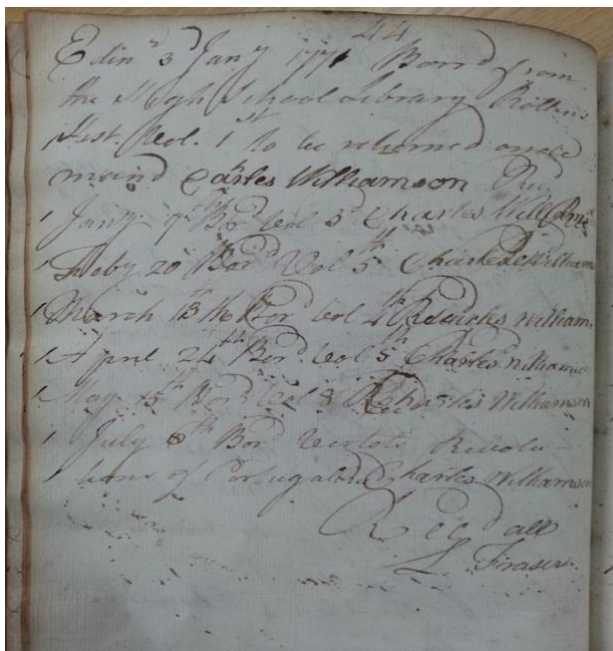 44
Edinr 3d Jany 1771 Borrd from
the High School Library Rollins
Hist. Vol. 1st to be returned on de
mand Carles Williamson Recd
Jany 9th Bord Vol 3d Charles Williamso
Feby 20 Bord Vol 5th Charles William
March 13th Bord Vol 4th Recd Charles William
April 24th Bord Vol 5th Charles Williamso
May 15th Bord Vol 8 Recd Charles Williamson
July 8th Bord Vertots Revolu
tions of Portugal Charles Williamson
Recd all
L. Fraser